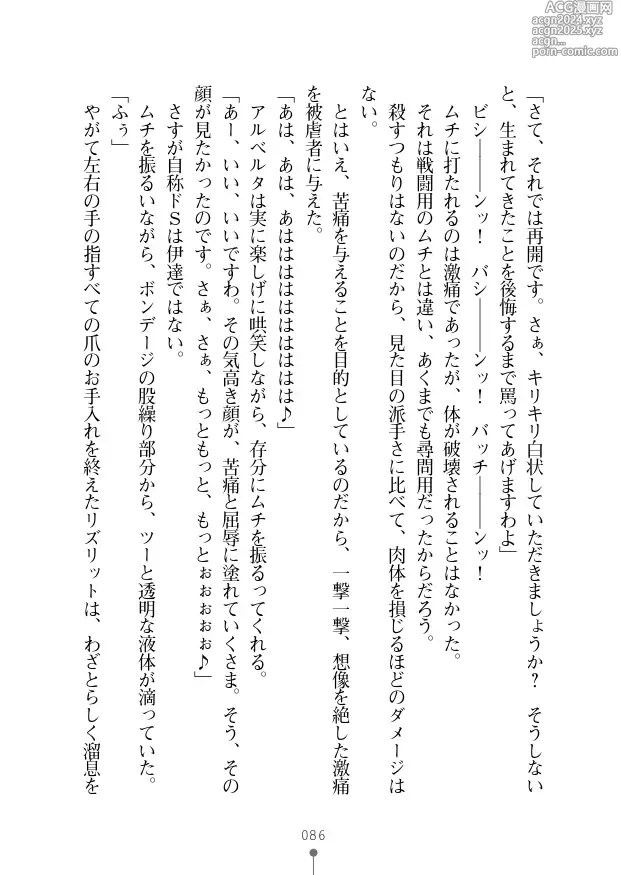 ACG漫画网
acgn2024.xyz
acgn2025.xyz
acgn...
porn-comic.com
「さて、それでは再開です。さぁ、キリキリ白状していただきましょうか？　そうしない
と、生まれてきたことを後悔するまで罵ってあげますわよ」
ビシ―――ンッ！　バシ―――ンッ！　バッチ―――ンッ！
ムチに打たれるのは激痛であったが、体が破壊されることはなかった。
それは戦闘用のムチとは違い、あくまでも尋問用だったからだろう。
殺すつもりはないのだから、見た目の派手さに比べて、肉体を損じるほどのダメージは
ない。
とはいえ、苦痛を与えることを目的としているのだから、一撃一撃、想像を絶した激痛
を被虐者に与えた。
「あは、あは、あははははははははは♪」
アルベルタは実に楽しげに哄笑しながら、存分にムチを振るってくれる。
「あー、いい、いいですわ。その気高き顔が、苦痛と屈辱に塗れていくさま。そう、その
顔が見たかったのです。さぁ、さぁ、もっともっと、もっとぉぉぉぉぉ♪」
さすが自称ドＳは伊達ではない。
ムチを振るいながら、ボンデージの股繰り部分から、ツーと透明な液体が滴っていた。
「ふぅ」
やがて左右の手の指すべての爪のお手入れを終えたリズリットは、わざとらしく溜息を
086